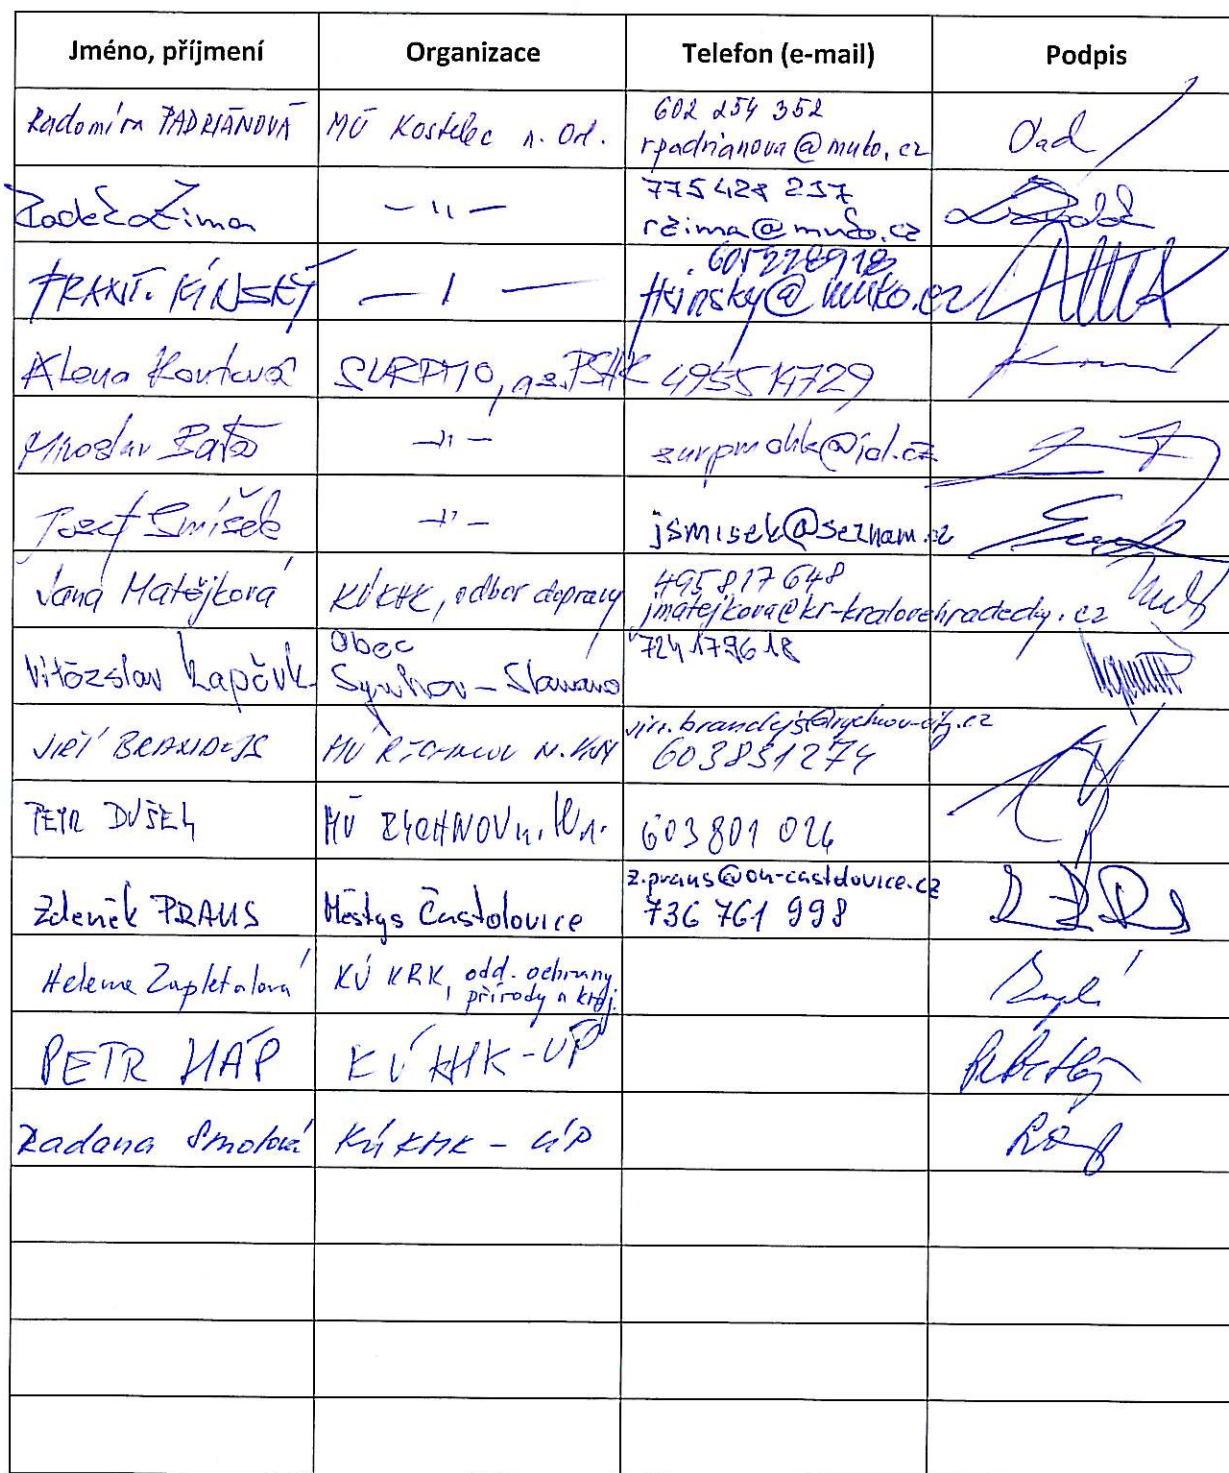 Jméno, příjmení Organizace Telefon (e-mail) Podpis
Radomíra PADRIÁNOVÁ MÚ Kostelec n. Orl. 602 254 352
rpadrianova@muko.cz
Žima — 11 — 775 428 237
rzima@muko.cz
FRANT. KINSKÝ — 1 — 605228918
fkinsky@muko.cz
Alena Koutová SURPMO, a.s. PSHK 495514729
Miroslav Baťa — 11 — surpmohk@iol.cz
Josef Smíšek — 11 — jsmisek@seznam.cz
Jana Matějková KÚ KHK, odbor dopravy 495 817 648
jmatejkova@kr-kralovehradecky.cz
Vítězslav Kapčuk Obec
Synkov - Slemeno
724179618
JIŘÍ BRANDEJS MÚ RYCHNOV N. KN. jiri.brandejs@rychnov-city.cz
603831274
PETR DUŠEK MÚ RYCHNOV n. Kn. 603 801 026
Zdeněk PRAUS Městys Častolovice z.praus@ou-castolovice.cz
736 761 998
Helena Zapletalová KÚ KRK, odd. ochrany
přírody a kraj.
PETR HÁP KÚ KHK - ÚP
Radana Smolová KÚ KHK - ÚP